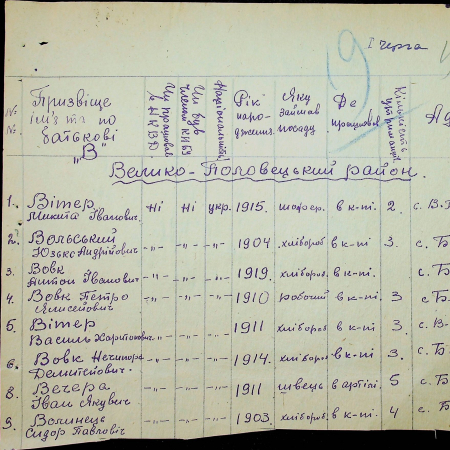 9 І черга
№ № Призвіще ім'я та по батькові "В" Чи працював в НКВД Чи був членом КП/б/У Національність Рік народження Яку займав посаду Де працював Кількість утриманців Ад
Велико-Половецький район.
1. Вітер Микита Іванович. Ні Ні укр. 1915. шофер. в к-пі. 2. с. В.
2. Вольський Юзько Андрійович -"- -"- -"- 1904. хлібороб в к-пі. 3. с. Б
3. Вовк Антон Іванович -"- -"- -"- 1919. хлібороб. в к-пі. с. Б
4. Вовк Петро -"- -"- -"- 1910 робочий в к-пі. 3 с. Б
5. Вітер Василь Харитонович -"- -"- -"- 1911 хлібороб в к-пі. 3 с. В-
6. Вовк Нечипор Дементієвич. -"- -"- -"- 1914. хлібороб в к-пі. 3. с. Б
8. Вечера Іван Якович -"- -"- -"- 1911 швець в артілі. 5 с. Б
9. Волинець Сидор Павлович -"- -"- -"- 1903. хлібороб. в к-пі. 4 с. Б